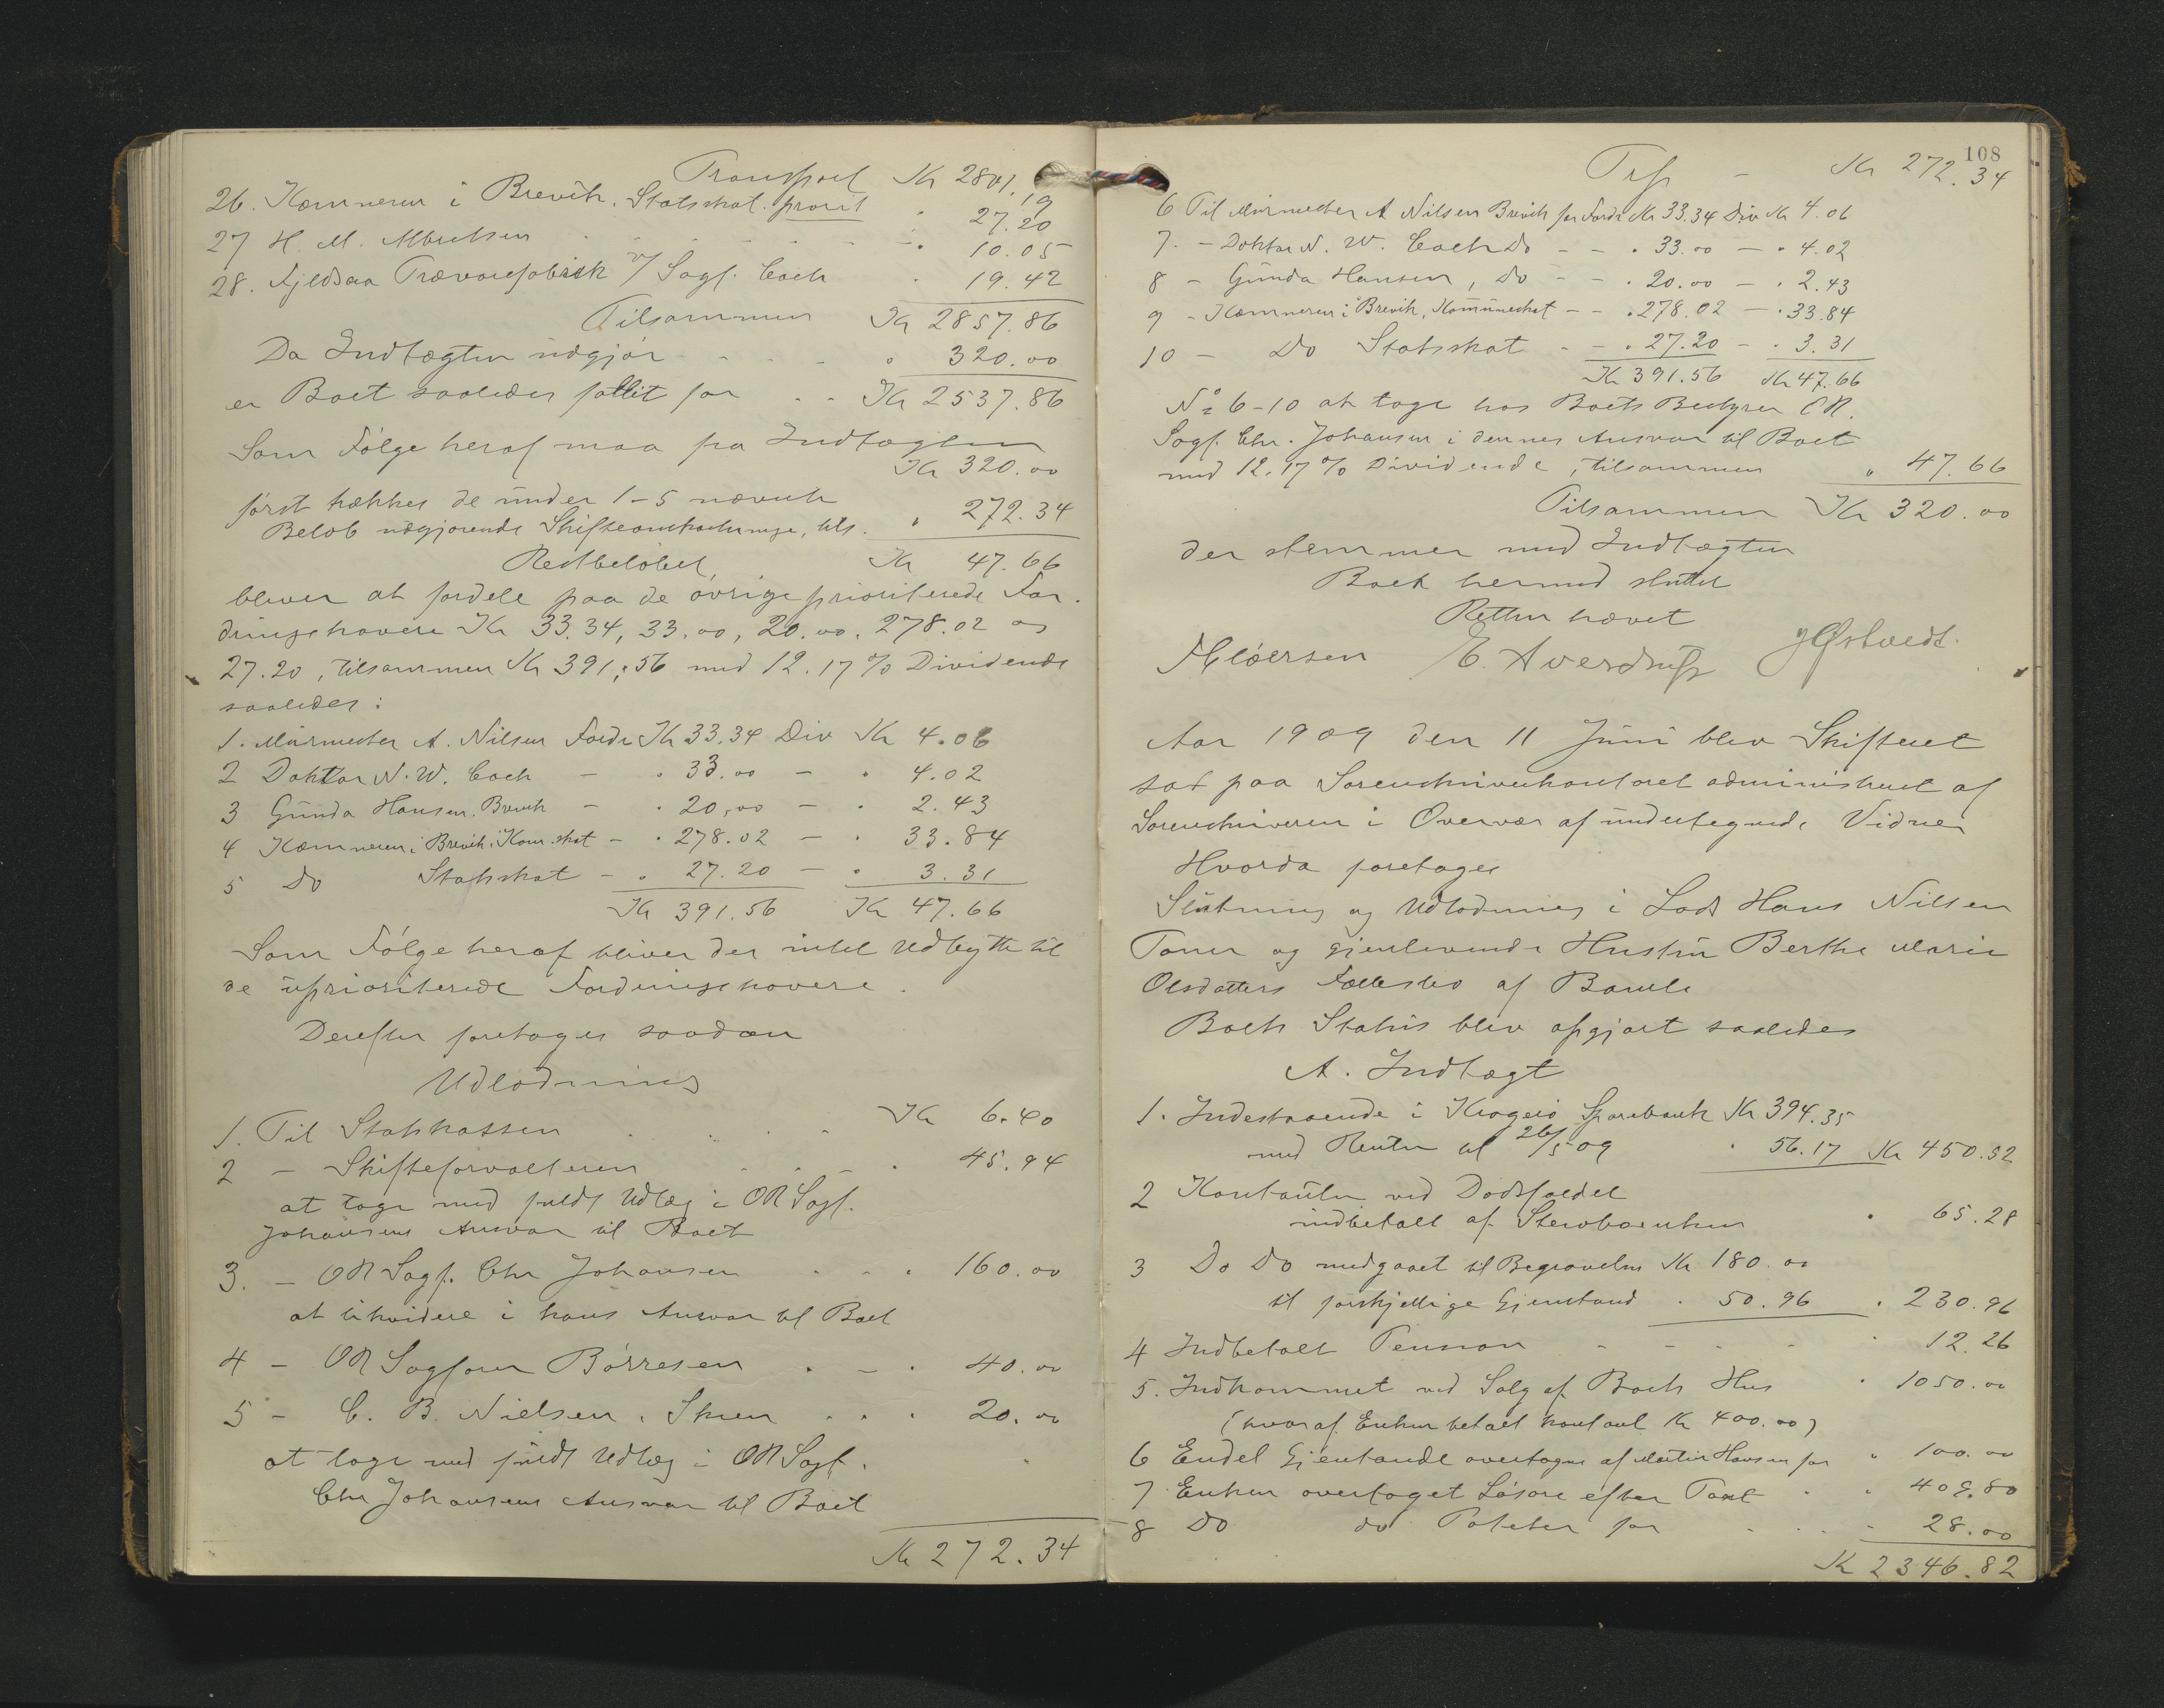 Transport Kr 2801.19
26. Kæmneren i Brevik. Statsskat. priorit " 27.20
27 H. M. Albretsen " 10.05
28. Fjeldsaa Trævarefabrik v/ Sagf. Coch " 19.42
Tilsammen Kr 2857.86
Da Indtægten udgjör " 320.00
er Boet saaledes fallit for Kr 2537.86
Som Fölge heraf maa fra Indtægten
Kr 320.00
först trækkes de under 1-5 nævnte
Belöb udgjørende Skifteomkostninge, tils. " 272.34
Restbelöbet, Kr 47.66
bliver at fordele paa de övrige prioriterede For-
dringshavere Kr 33.34, 33.00, 20.00, 278.02 og
27.20, tilsammen Kr 391.56 med 12.17 % Dividende
saaledes:
1. Murmester A. Nilsen Fordr Kr 33.34 Div Kr 4.06
2 Doktor N. W. Coch - " 33.00 - " 4.02
3 Gunda Hansen, Brevik - " 20.00 - " 2.43
4 Kæmneren i Brevik, Kom.skat - " 278.02 - " 33.84
5 Do Statsskat - " 27.20 - " 3.31
Kr 391.56 Kr 47.66
Som Fölge heraf bliver der intet Udbytte til
de uprioriterede Fordringshavere.
Derefter foretages saadan
Udlodning
1. Til Statskassen Kr 6.40
2 - Skifteforvalteren " 45.94
at tage med fuldt Udlæg i OR Sagf.
Johansens Ansvar til Boet
3. - OR Sagf. Chr Johansen " 160.00
at likvidere i hans Ansvar til Boet
4 - OR Sagförer Börresen " 40.00
5 - C. B. Nielsen, Skien " 20.00
at tage med fuldt Udlæg i OR Sagf.
Chr Johansens Ansvar til Boet
Kr 272.34
108
Trsp - Kr 272.34
6 Til Murmester A Nilsen Brevik for Fordr Kr 33.34 Div Kr 4.06
7. - Doktor N. W. Coch Do - - " 33.00 - " 4.02
8 - Gunda Hansen, Do - - " 20.00 - " 2.43
9 - Kæmneren i Brevik, Kommuneskat - - " 278.02 - " 33.84
10 - Do Statsskat - - " 27.20 - " 3.31
Kr 391.56 Kr 47.66
No 6-10 at tage hos Boets Bestyrer OR.
Sagf. Chr. Johansen i dennes Ansvar til Boet
med 12.17 % Dividende, tilsammen " 47.66
Tilsammen Kr 320.00
der stemmer med Indtægten
Boet hermed sluttet
Retten hævet
E. Averdrup J Østvedt.
Aar 1909 den 11 Juni blev Skifteret
sat paa Sorenskriverkontoret administreret af
Sorenskriveren i Overvær af undertegnede Vidner
Hvorda foretages
Slutning og Udlodning i Lods Hans Nilsen
Toner og gjenlevende Hustru Berthe Marie
Olsdatters Fællesbo af Bamle
Boets Status blev opgjort saaledes
A. Indtægt
1. Indestaaende i Kragerö Sparebank Kr 394.35
med Renter til 26/5 09 " 56.17 Kr 450.52
2 Kontanter ved Dödsfaldet
indbetalt af Stervboenken " 65.28
3 Do Do medgaaet til Begravelse Kr 180.00
til forskjellige Gjenstand " 50.96 " 230.96
4 Indbetalt Pension " 12.26
5. Indkommet ved Salg af Boets Hus " 1050.00
(hvoraf Enken betalt kontant Kr 400.00)
6 Endel Gjenstande overtagne af Martin Hansen for " 100.00
7 Enken overtaget Lösöre efter Taxt " 409.80
8 Do do Poteter for " 28.00
Kr 2346.82